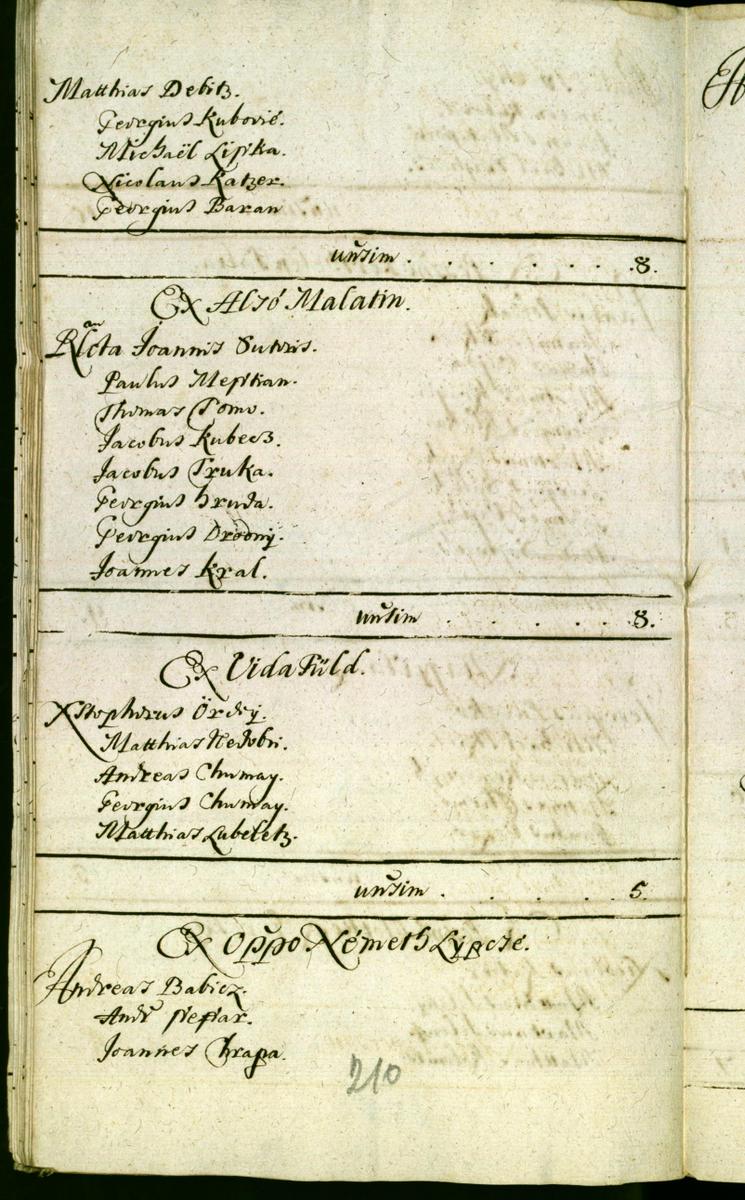 Matthias Debitz.
Georgius Kubovič.
Michaël Lipka.
Nicolaus Katzer.
Georgius Baran
unsim . . . . . . . 8.
Ex Alsó Malatin.
Relcta Joannis Sutoris.
Paulus Messkan.
Thomas Tomo.
Jacobus Kubecz.
Jacobus Truka.
Georgius Hruda.
Georgius Drobnÿ.
Joannes Kral.
unsim . . . . . . 8.
Ex Vida Füld.
Xstophorus Ördög.
Matthias Nedobri.
Andreas Chumay.
Georgius Chumay.
Matthias Lubeletz.
unsim . . . . . . 5.
Ex Oppo Németh Lÿpcse.
Andreas Babicz.
Joannes Chrapa.
210